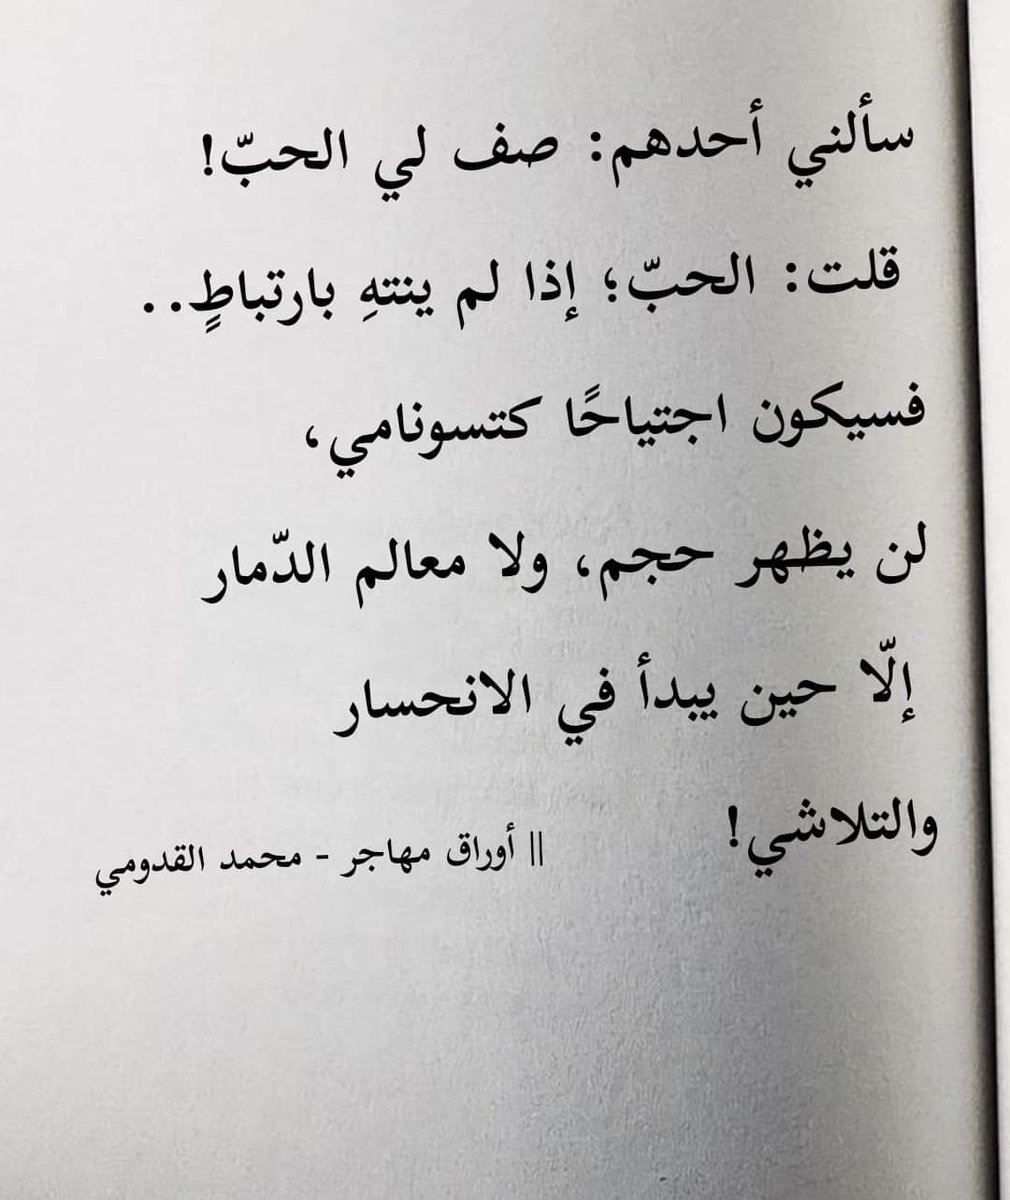 سألني أحدهم: صف لي الحبّ!
قلت: الحبّ؛ إذا لم ينتهِ بارتباطٍ..
فسيكون اجتياحًا كتسونامي،
لن يظهر حجم، ولا معالم الدّمار
إلّا حين يبدأ في الانحسار
والتلاشي!
|| أوراق مهاجر - محمد القدومي